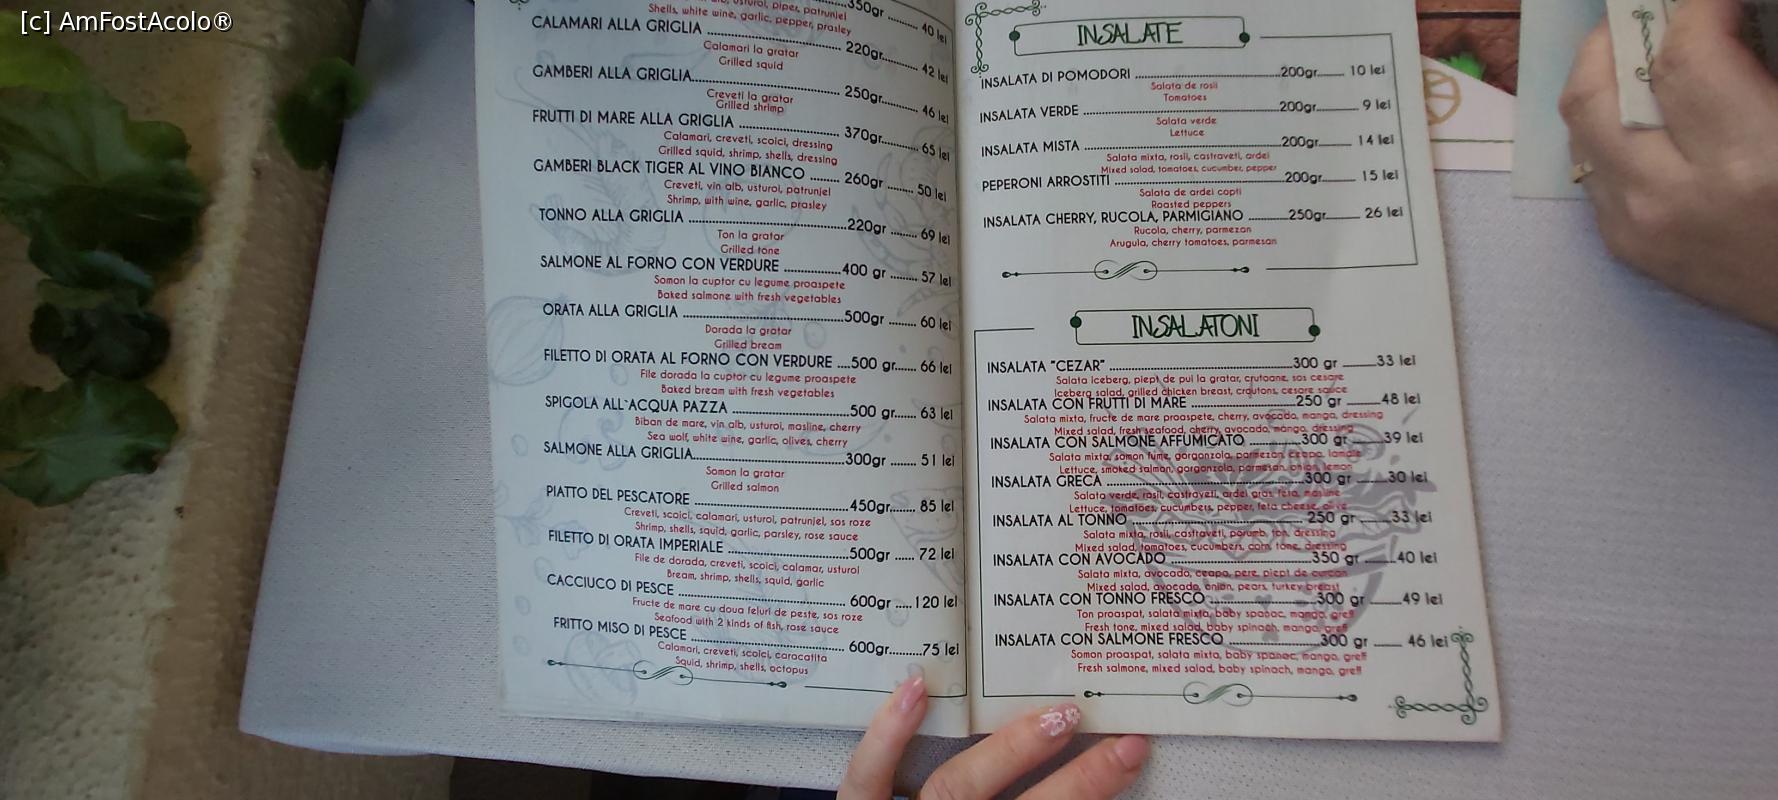 [c] AmFostAcolo®
usturoi, piper, patrunjel
350gr ........ 40 lei
Shells, white wine, garlic, pepper, prasley
CALAMARI ALLA GRIGLIA ........ 220gr ........ 42 lei
Calamari la gratar
Grilled squid
GAMBERI ALLA GRIGLIA ........ 250gr ........ 46 lei
Creveti la gratar
Grilled shrimp
FRUTTI DI MARE ALLA GRIGLIA ........ 370gr ........ 65 lei
Calamari, creveti, scoici, dressing
Grilled squid, shrimp, shells, dressing
GAMBERI BLACK TIGER AL VINO BIANCO ........ 260gr ........ 50 lei
Creveti, vin alb, usturoi, patrunjel
Shrimp, with wine, garlic, prasley
TONNO ALLA GRIGLIA ........ 220gr ........ 69 lei
Ton la gratar
Grilled tone
SALMONE AL FORNO CON VERDURE ........ 400 gr ........ 57 lei
Somon la cuptor cu legume proaspete
Baked salmone with fresh vegetables
ORATA ALLA GRIGLIA ........ 500gr ........ 60 lei
Dorada la gratar
Grilled bream
FILETTO DI ORATA AL FORNO CON VERDURE ....500 gr....... 66 lei
File dorada la cuptor cu legume proaspete
Baked bream with fresh vegetables
SPIGOLA ALL`ACQUA PAZZA ........ 500 gr....... 63 lei
Biban de mare, vin alb, usturoi, masline, cherry
Sea wolf, white wine, garlic, olives, cherry
SALMONE ALLA GRIGLIA........ 300gr ........ 51 lei
Somon la gratar
Grilled salmon
PIATTO DEL PESCATORE ........ 450gr........ 85 lei
Creveti, scoici, calamari, usturoi, patrunjel, sos roze
Shrimp, shells, squid, garlic, parsley, rose sauce
FILETTO DI ORATA IMPERIALE ........ 500gr ...... 72 lei
File de dorada, creveti, scoici, calamar, usturoi
Bream, shrimp, shells, squid, garlic
CACCIUCO DI PESCE ........ 600gr .....120 lei
Fructe de mare cu doua feluri de peste, sos roze
Seafood with 2 kinds of fish, rose sauce
FRITTO MISO DI PESCE ........ 600gr..........75 lei
Calamari, creveti, scoici, caracatita
Squid, shrimp, shells, octopus
INSALATE
INSALATA DI POMODORI ........ 200gr........ 10 lei
Salata de rosii
Tomatoes
INSALATA VERDE ........ 200gr........ 9 lei
Salata verde
Lettuce
INSALATA MISTA ........ 200gr........ 14 lei
Salata mixta, rosii, castraveti, ardei
Mixed salad, tomatoes, cucumber, pepper
PEPERONI ARROSTITI ........ 200gr........ 15 lei
Salata de ardei copti
Roasted peppers
INSALATA CHERRY, RUCOLA, PARMIGIANO ........ 250gr........ 26 lei
Rucola, cherry, parmezan
Arugula, cherry tomatoes, parmesan
INSALATONI
INSALATA "CEZAR" ........ 300 gr ........33 lei
Salata Iceberg, piept de pui la gratar, crutoane, sos cesare
Iceberg salad, grilled chicken breast, croutons, cesare sauce
INSALATA CON FRUTTI DI MARE ........ 250 gr ........48 lei
Salata mixta, fructe de mare proaspete, cherry, avocado, mango, dressing
Mixed salad, fresh seafood, cherry, avocado, mango, dressing
INSALATA CON SALMONE AFFUMICATO ........ 300 gr ........39 lei
Salata mixta, somon fume, gorgonzola, parmezan, ceapa, lamaie
Lettuce, smoked salmon, gorgonzola, parmesan, onion, lemon
INSALATA GRECA ........ 300 gr ........30 lei
Salata verde, rosii, castraveti, ardei gras, feta, masline
Lettuce, tomatoes, cucumbers, pepper, feta cheese, olive
INSALATA AL TONNO ........ 250 gr ........33 lei
Salata mixta, rosii, castraveti, porumb, ton, dressing
Mixed salad, tomatoes, cucumbers, corn, tone, dressing
INSALATA CON AVOCADO ........ 350 gr ........40 lei
Salata mixta, avocado, ceapa, pere, piept de curcan
Mixed salad, avocado, onion, pears, turkey breast
INSALATA CON TONNO FRESCO ........ 300 gr ........49 lei
Ton proaspat, salata mixta, baby spanac, mango, greff
Fresh tone, mixed salad, baby spinach, mango, greff
INSALATA CON SALMONE FRESCO ........ 300 gr ........ 46 lei
Somon proaspat, salata mixta, baby spanac, mango, greff
Fresh salmone, mixed salad, baby spinach, mango, greff